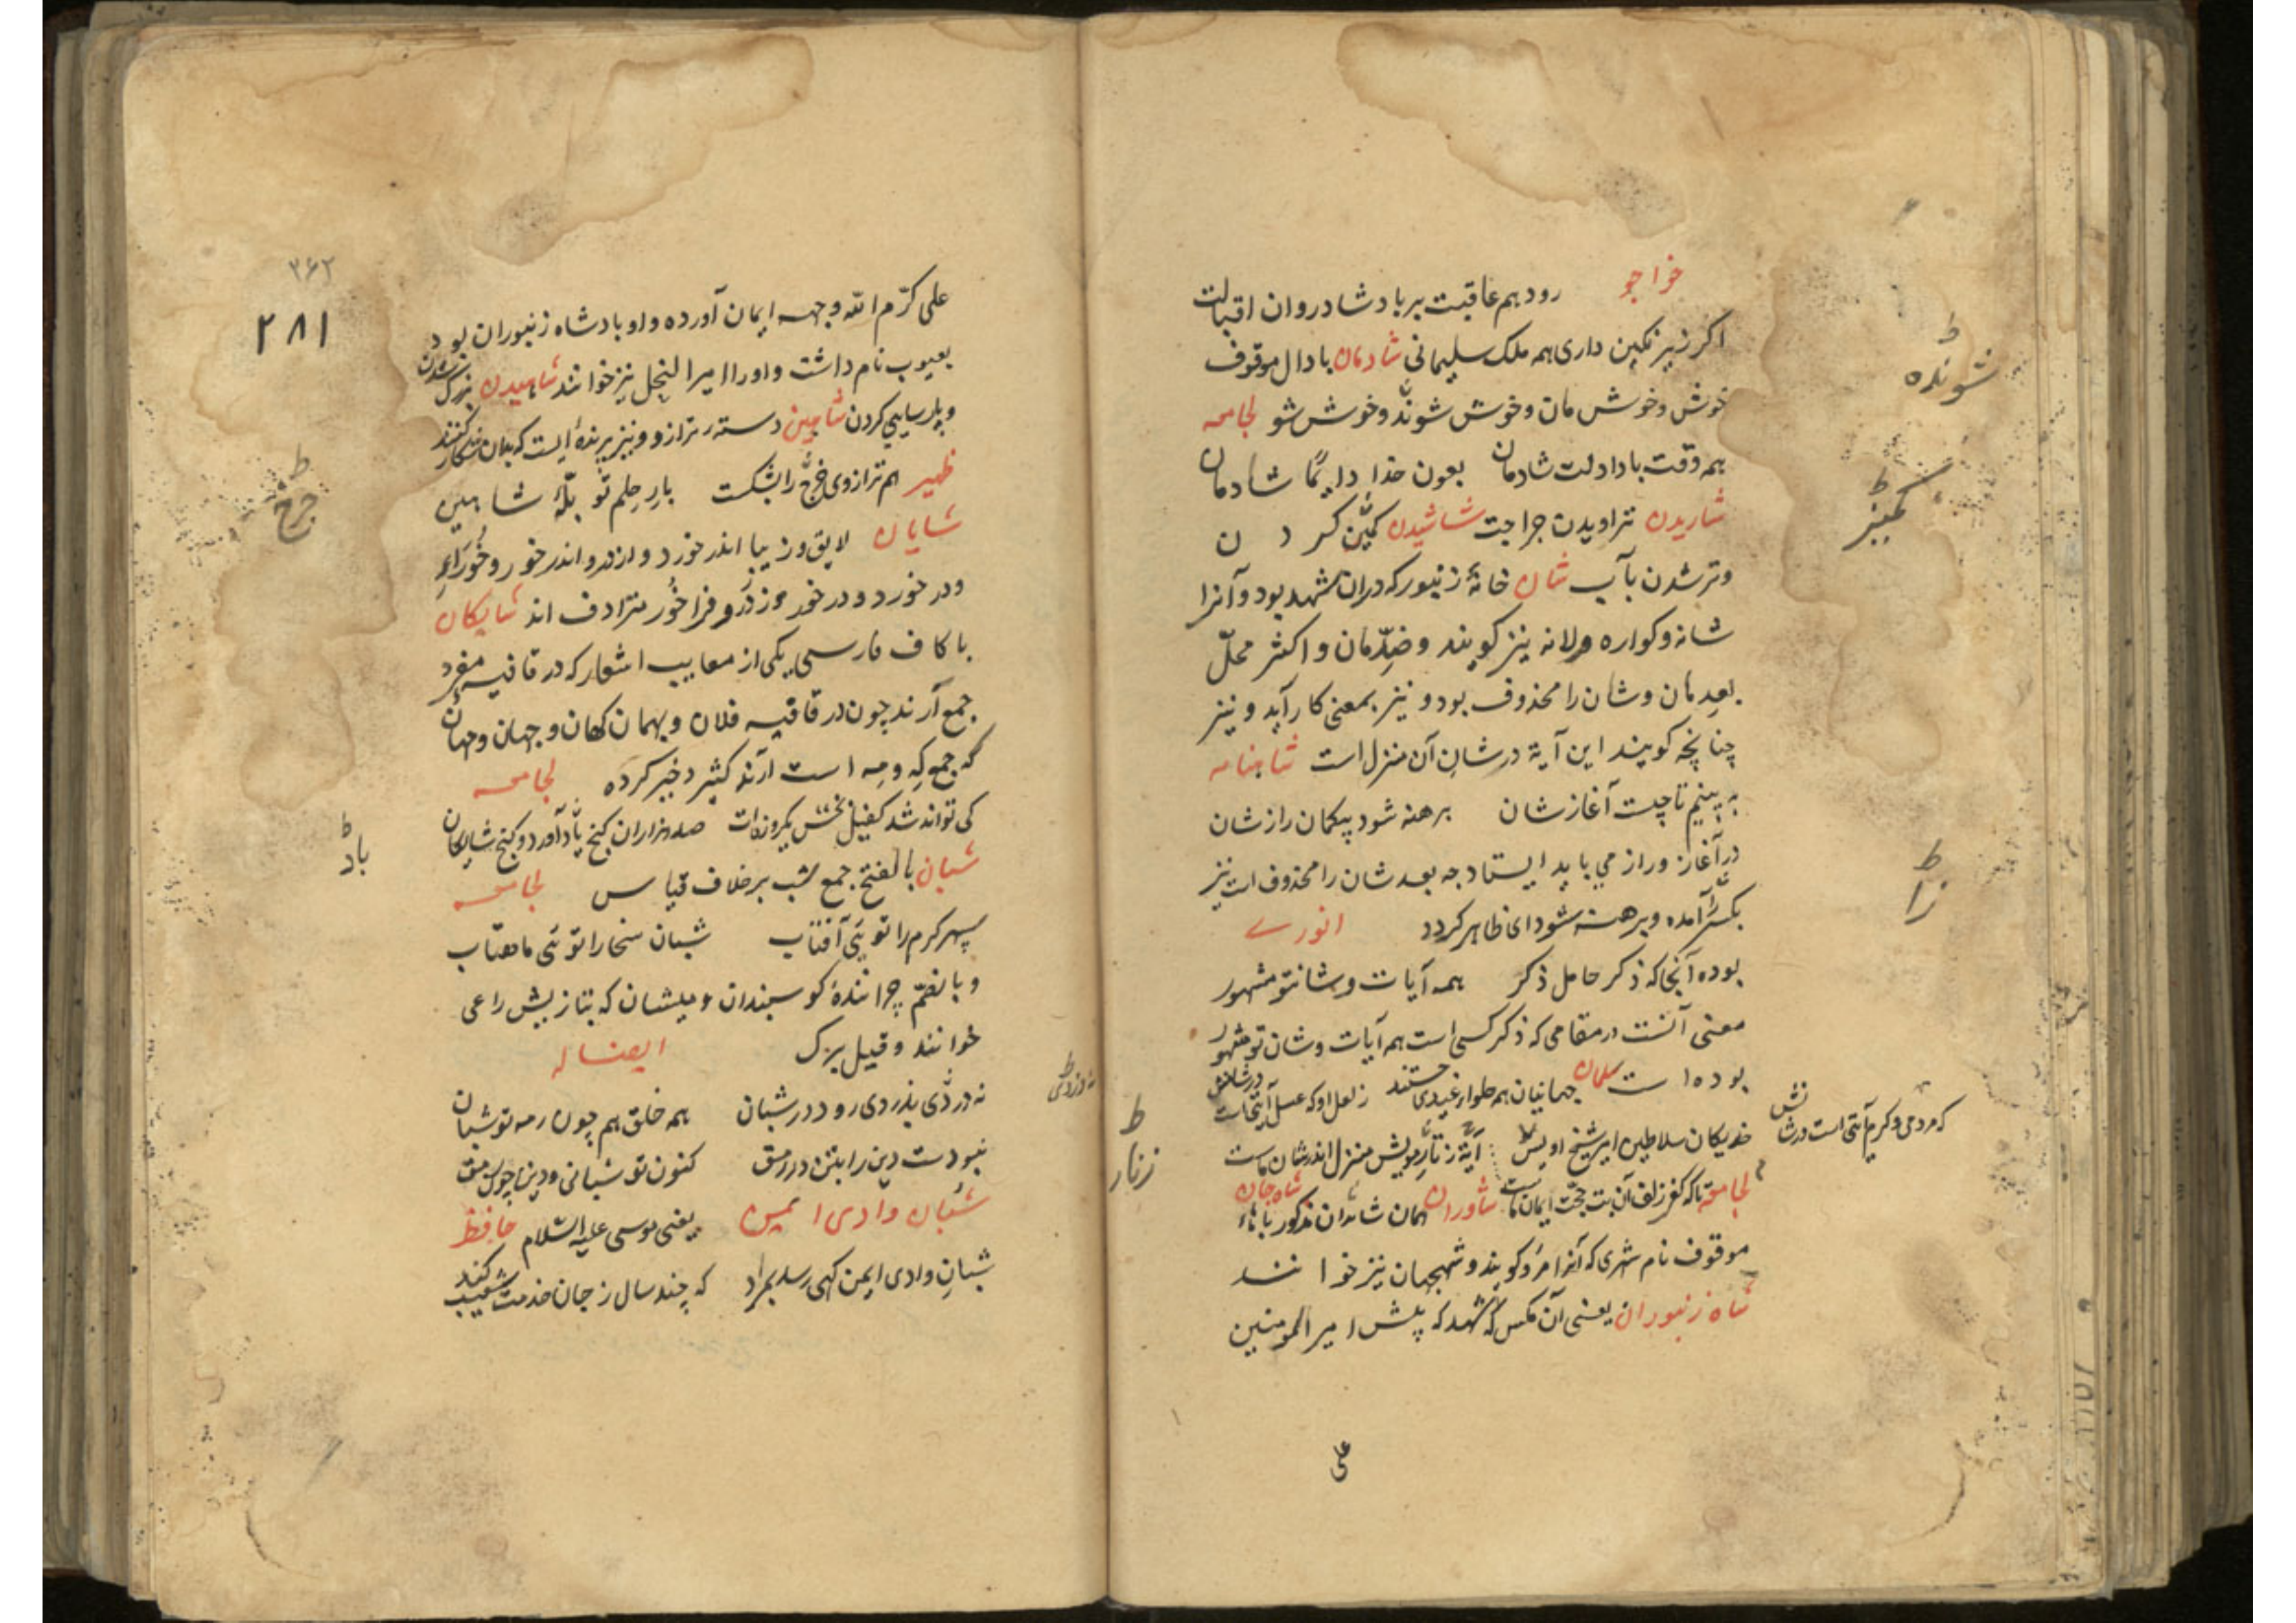 خواجو رود هم عاقبت بر باد شادروان اقبالت
اکر زیر نکین داری همه ملک سلیمانی شادمان با دال موقوف
خوش و خوش مان و خوش شونده و خوش شو لجامعه
همه وقت بادا دلت شادمان بعون خدا دایما شادمان
شاریدن تراویدن جراحت شاشیدن کمیز کردن
و تر شدن بآب شان خانهٔ زنبور که در آن شهد بود و آنرا
شانه و کواره و لانه نیز کویند و ضدّ مان و اکثر محلّ
بعد مان و شان را محذوف بود و نیز بمعنی کار آید و نیز
چنانچه کویند این آیة در شان آن منزل است شاهنامه
به بینیم تا چیست آغاز شان برهنه شود بیکمان راز شان
در آغاز و راز می باید ایستاد چه بعد شان را محذوف است نیز
بکسر را آمده و برهنه شود ای ظاهر کردد انوری
بوده آنجا که ذکر حامل ذکر همه آیات و شانتو مشهور
معنی آنست در مقامی که ذکر کسی است همه آیات و شان تو مشهور
بوده است سلمان جهانیان همه حلوا
خدیکان سلاطین امیر شیخ اویس که مردمی و کرم آیتی است در شانش
لجامعه تاکه کفر زلف آن بت حجّت ایمان ماست آیهٔ زنّار مویش منزل اندر شان ماست
شاوران همان شادران مذکور شاه جان با هاء
موقوف نام شهری که آنرا مرو کویند و شهجهان نیز خوانند
شاه زنبوران یعنی آن مکس شهد که پیش امیر المومنین
علی
شونده
کمیز
زا
زنار
۳۶۲
۲۸۱
علی کرّم الله وجهه ایمان آورده و او بادشاه زنبوران بود
یعسوب نام داشت و او را امیر النحل نیز خوانند شاهیدن بزرک شدن
و پارسایی کردن شاهین دستهٔ ترازو و نیز پرنده ایست که بدان شکار کنند
ظهیر هم ترازوی چرخ را بشکست بار حلم تو پلّهٔ شاهین
شایان لایق و زیبا اندر خورد و اندر خور و خورای
و در خورد و در خور و فراخور مترادف اند شایکان
با کاف فارسی یکی از معایب اشعار که در قافیه مفرد
جمع آرند چون در قافیه فلان و بهمان کهان و جهان و مهان
که جمع که و مه است آرند کثیر دخیر کرده لجامعه
کی تواند شد کفیل بخشش یکروزه ات صد هزاران کنج باد آورد و کنج شایکان
شبان بالفتح جمع شب بر خلاف قیاس لجامعه
سپهر کرم را تویی آفتاب شبان سخا را تویی ماهتاب
و بالضمّ چرانندهٔ کوسبندان و میشان که بتازیش راعی
خوانند و قیل بزرک ایضا له
نه دزدی بذردی رود در شبان همه خلق هم چون رمه تو شبان
نبودت دین را بتن در رمق کنون تو شبانی و دین را چون
شبان وادی ایمن یعنی موسی علیه السّلام حافظ
شبان وادی ایمن کهی رسد بمراد که چند سال ز جان خدمت شعیب کند
چرخ
باد
نه دزدی